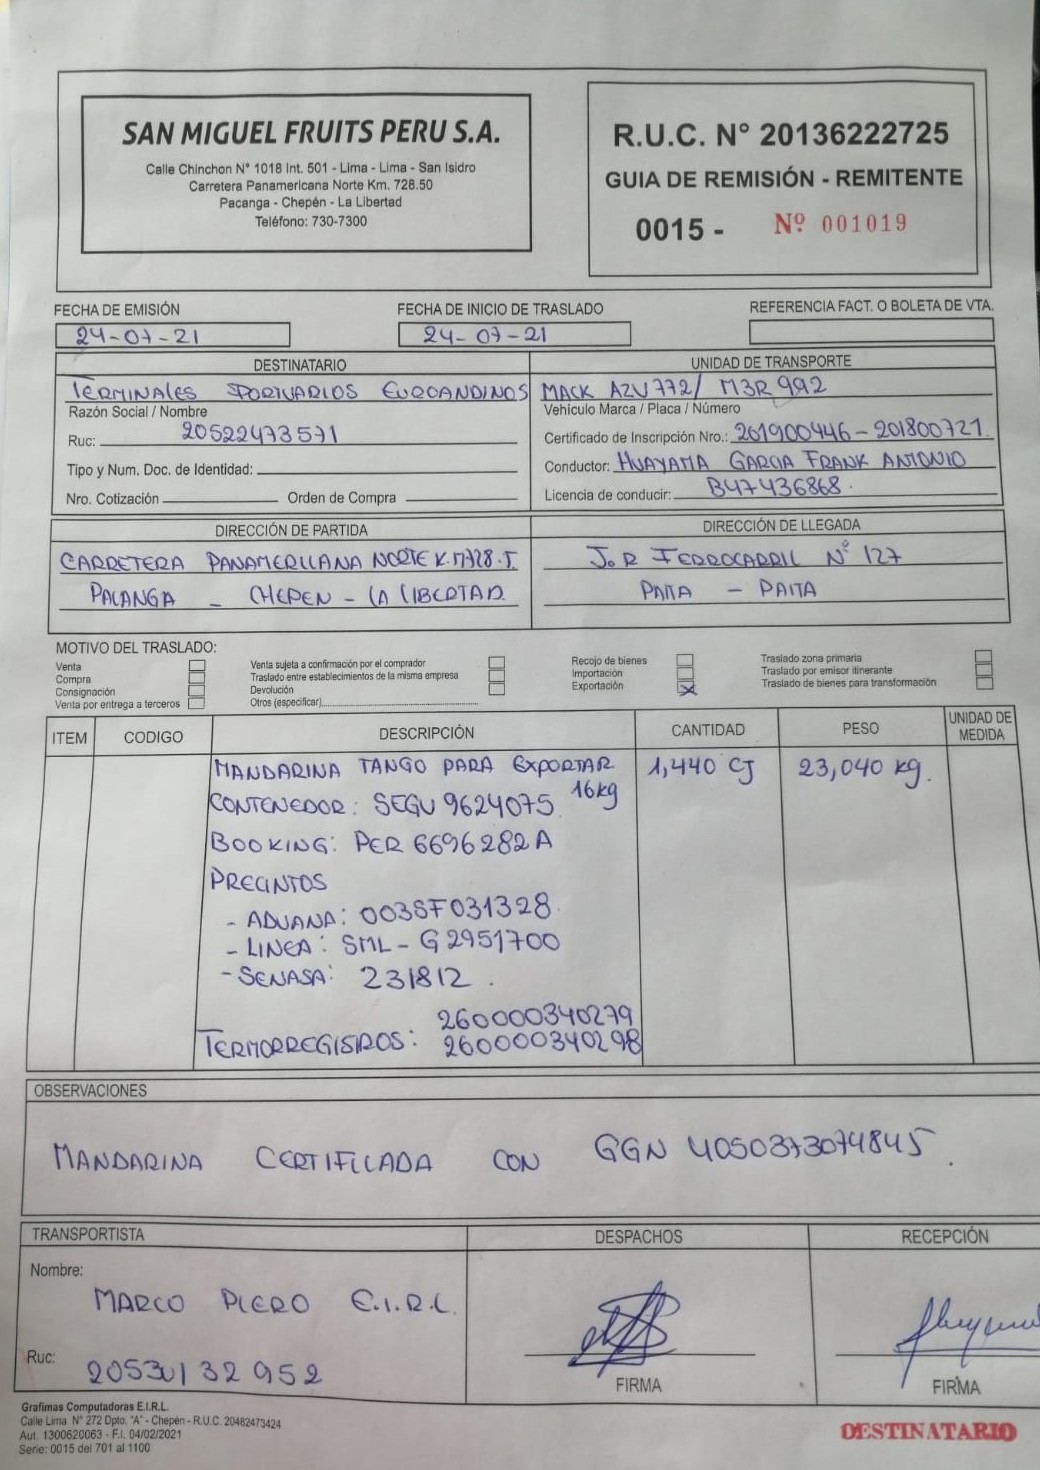 SAN MIGUEL FRUITS PERU S.A.
Calle Chinchon N° 1018 Int. 501 - Lima - Lima - San Isidro
Carretera Panamericana Norte Km. 728.50
Pacanga - Chepén - La Libertad
Teléfono: 730-7300
R.U.C. N° 20136222725
GUIA DE REMISIÓN - REMITENTE
0015 - Nº 001019
FECHA DE EMISIÓN
24-07-21
FECHA DE INICIO DE TRASLADO
24-07-21
REFERENCIA FACT. O BOLETA DE VTA.
DESTINATARIO
TERMINALES PORTUARIOS EUROANDINOS
Razón Social / Nombre
Ruc: 20522473571
Tipo y Num. Doc. de Identidad:
Nro. Cotización Orden de Compra
UNIDAD DE TRANSPORTE
MACK AZU 772/ M3R 992
Vehículo Marca / Placa / Número
Certificado de Inscripción Nro.: 201900446 - 201800721
Conductor: HUAYAMA GARCIA FRANK ANTONIO
Licencia de conducir: B47436868.
DIRECCIÓN DE PARTIDA
CARRETERA PANAMERICANA NORTE K.M728.5
PACANGA - CHEPEN - LA LIBERTAD.
DIRECCIÓN DE LLEGADA
J.R FERROCARRIL N° 127
PAITA - PAITA
MOTIVO DEL TRASLADO:
Venta
Compra
Consignación
Venta por entrega a terceros
Venta sujeta a confirmación por el comprador
Traslado entre establecimientos de la misma empresa
Devolución
Otros (especificar)
Recojo de bienes
Importación
Exportación X
Traslado zona primaria
Traslado por emisor itinerante
Traslado de bienes para transformación
ITEM CODIGO DESCRIPCIÓN CANTIDAD PESO UNIDAD DE MEDIDA
MANDARINA TANGO PARA EXPORTAR 1,440 CJ 23,040 kg.
16kg
CONTENEDOR: SEGU 9624075
BOOKING: PER 6696282A
PRECINTOS
- ADUANA: 003SF031328.
- LINEA: SML - G2951700
- SENASA: 231812.
260000340279
TERMORREGISTROS: 260000340298
OBSERVACIONES
MANDARINA CERTIFICADA CON GGN 4050373074845.
TRANSPORTISTA
Nombre:
MARCO PIERO E.I.R.L.
Ruc:
20530132952
DESPACHOS
FIRMA
RECEPCIÓN
FIRMA
Grafimas Computadoras E.I.R.L.
Calle Lima N° 272 Dpto. "A" - Chepén - R.U.C. 20482473424
Aut. 1300620063 - F.I. 04/02/2021
Serie: 0015 del 701 al 1100
DESTINATARIO